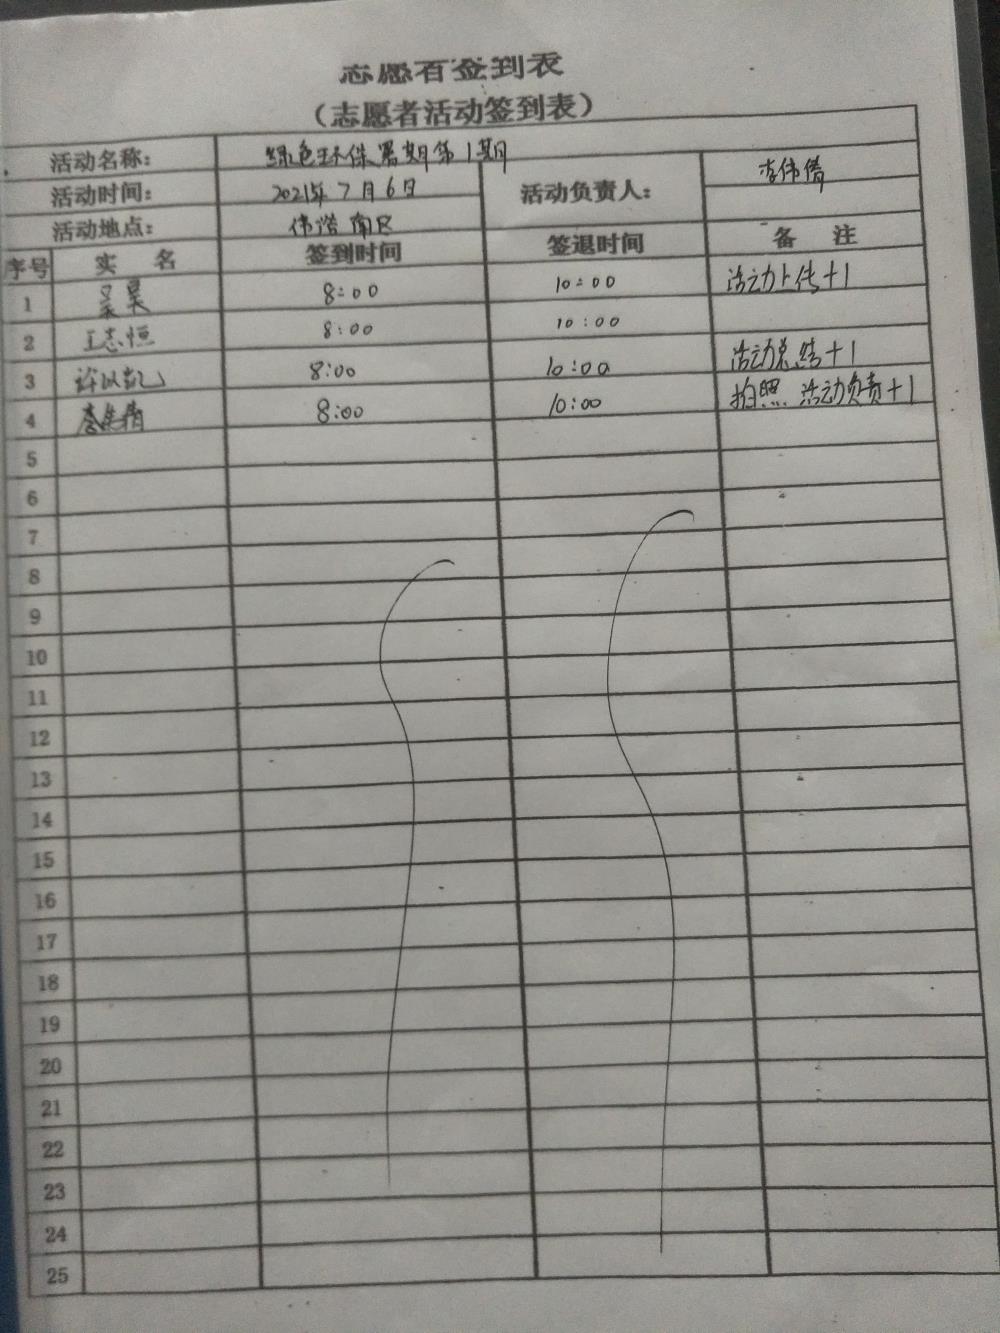 志愿者签到表
（志愿者活动签到表）
活动名称： 绿色环保暑期第1期
活动时间： 2021年7月6日 活动负责人： 李伟倩
活动地点： 伟浩南区
序号 实 名 签到时间 签退时间 备 注
1 吴昊 8:00 10:00 活动上传+1
2 王志恒 8:00 10:00
3 8:00 10:00 活动总结+1
4 8:00 10:00 拍照 活动负责+1
5
6
7
8
9
10
11
12
13
14
15
16
17
18
19
20
21
22
23
24
25